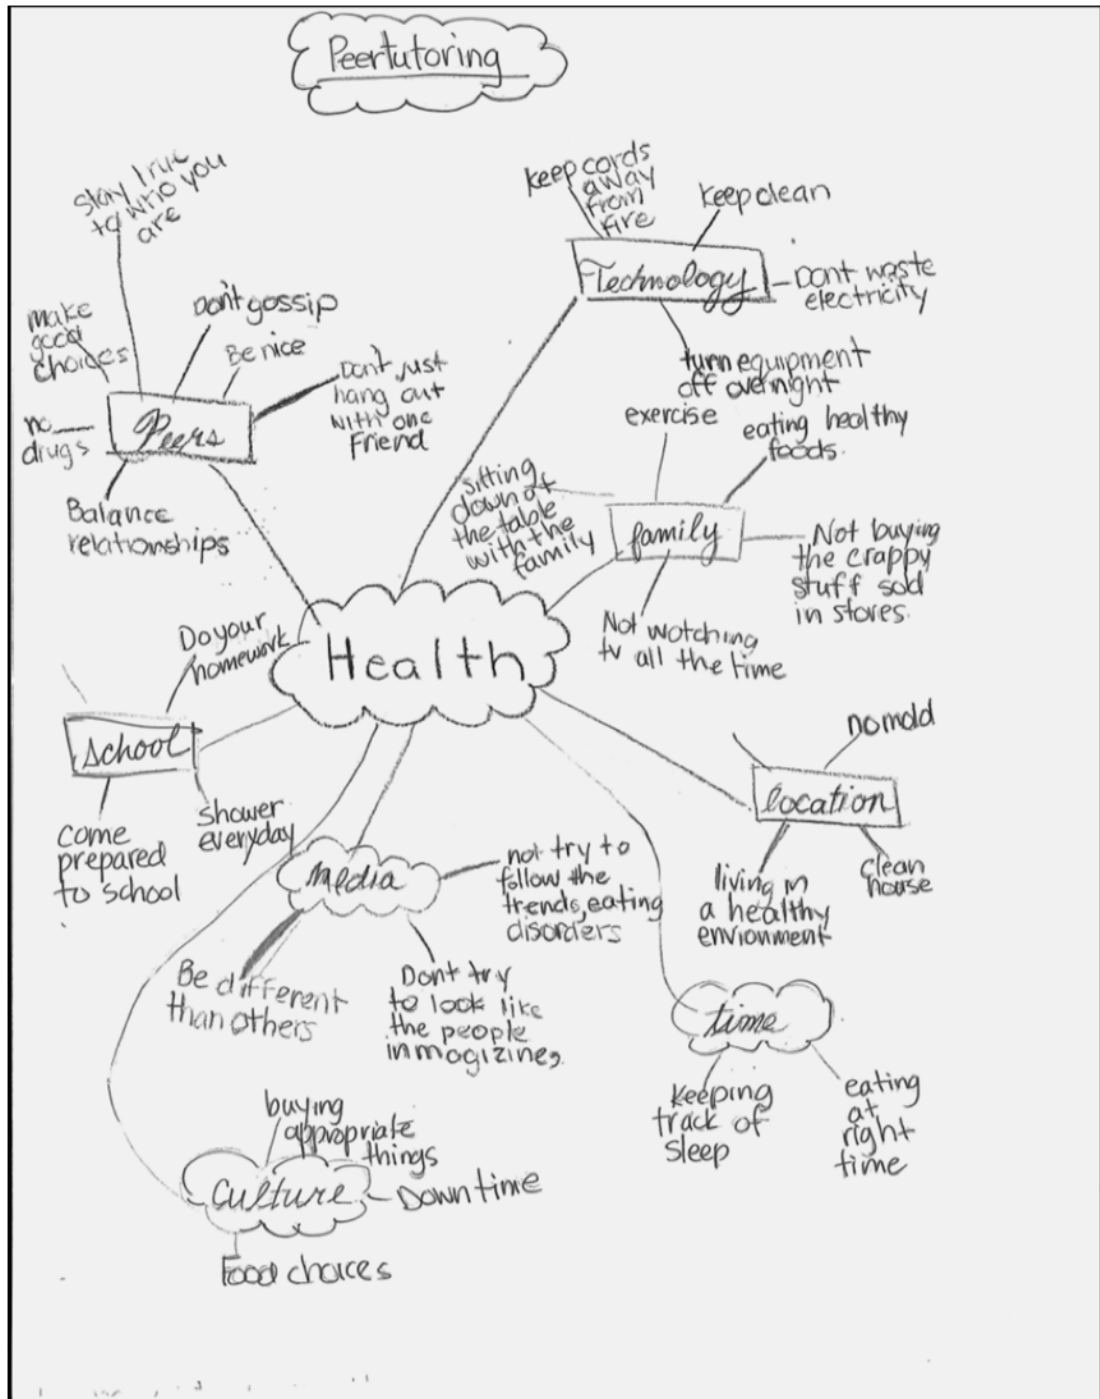 Peertutoring
stay true
to who you
are
make
good
choices
Don't gossip
Be nice
Don't just
hang out
with one
Friend
no
drugs
Peers
Balance
relationships
keep cords
away
from
fire
keep clean
Technology
Dont waste
electricity
turn equipment
off overnight
exercise
eating healthy
foods.
sitting
down at
the table
with the
family
family
Not buying
the crappy
stuff sold
in stores.
Not watching
tv all the time
Health
Do your
homework
school
come
prepared
to school
shower
everyday
media
not try to
follow the
trends, eating
disorders
Be different
than others
Dont try
to look like
the people
in mogizines
no mold
location
living in
a healthy
envionment
clean
house
time
keeping
track of
sleep
eating
at
right
time
buying
appropriate
things
culture
Down time
Food choices